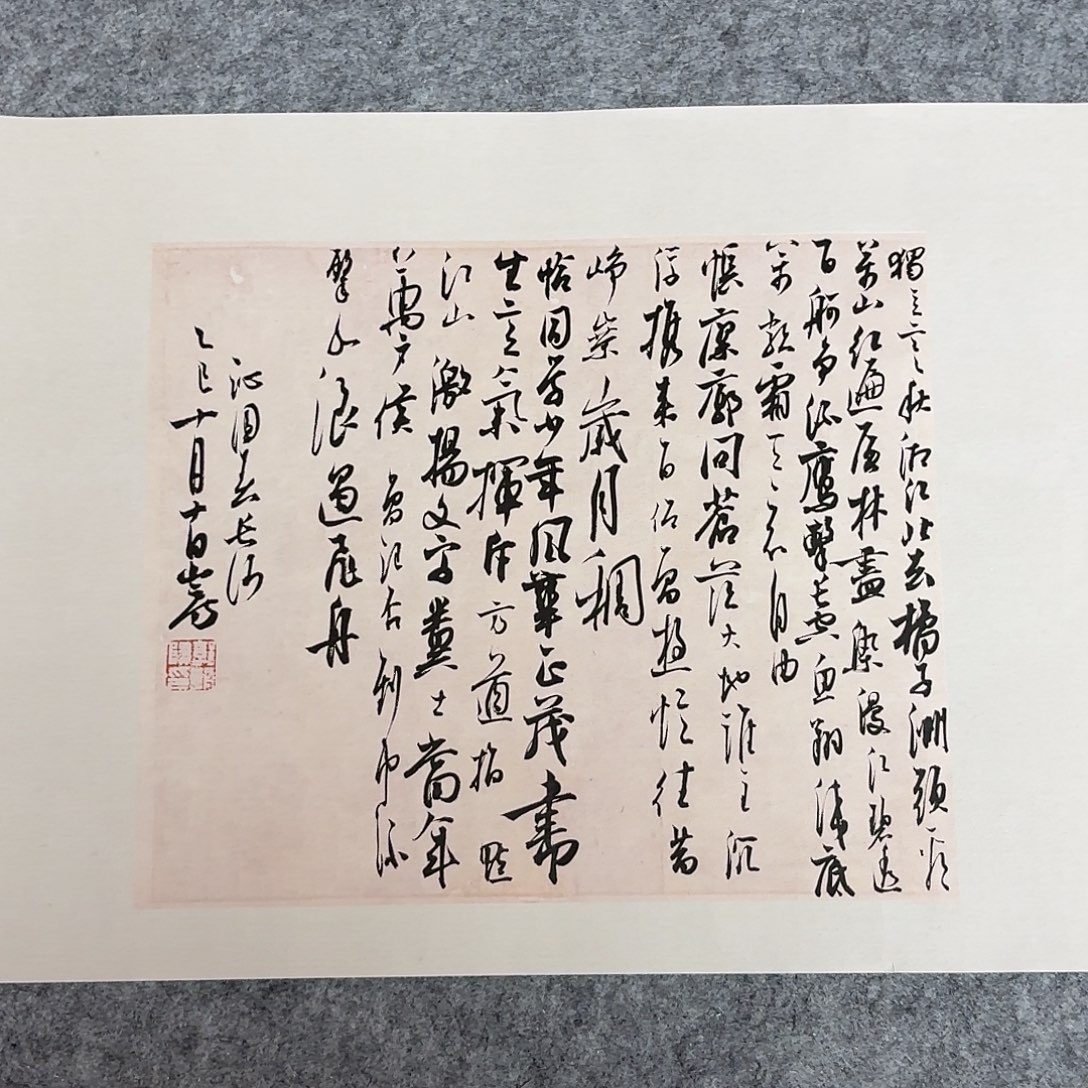 獨立寒秋湘江北去橘子洲頭看
萬山紅遍層林盡染漫江碧透
百舸爭流鷹擊長空魚翔淺底
萬類霜天競自由
悵寥廓問蒼茫大地誰主沉
浮攜來百侶曾遊憶往昔
崢嶸歲月稠
恰同學少年風華正茂書
生意氣揮斥方遒指點
江山激揚文字糞土當年
萬戶侯曾記否到中流
擊水浪遏飛舟
沁園春長沙
乙巳十月十